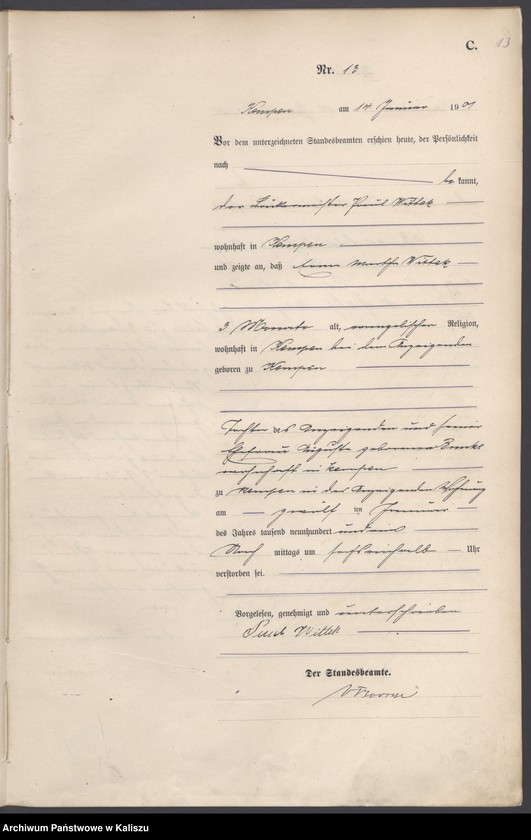 C. 13
Nr. 13
Kempen am 14 Januar 1901
Vor dem unterzeichneten Standesbeamten erschien heute, der Persönlichkeit
nach
be kannt,
der Paul Wittek
wohnhaft in Kempen
und zeigte an, daß Martha Wittek
3 Monate alt, evangelischer Religion,
wohnhaft in Kempen bei dem Anzeigenden
geboren zu Kempen
Tochter des Anzeigenden und seiner
Ehefrau Auguste geborenen
wohnhaft in Kempen
zu Kempen in des Anzeigenden Wohnung
am zwölf ten Januar
des Jahres tausend neunhundert und eins
Nach mittags um Uhr
verstorben sei.
Vorgelesen, genehmigt und unterschrieben
Paul Wittek
Der Standesbeamte.
Archiwum Państwowe w Kaliszu